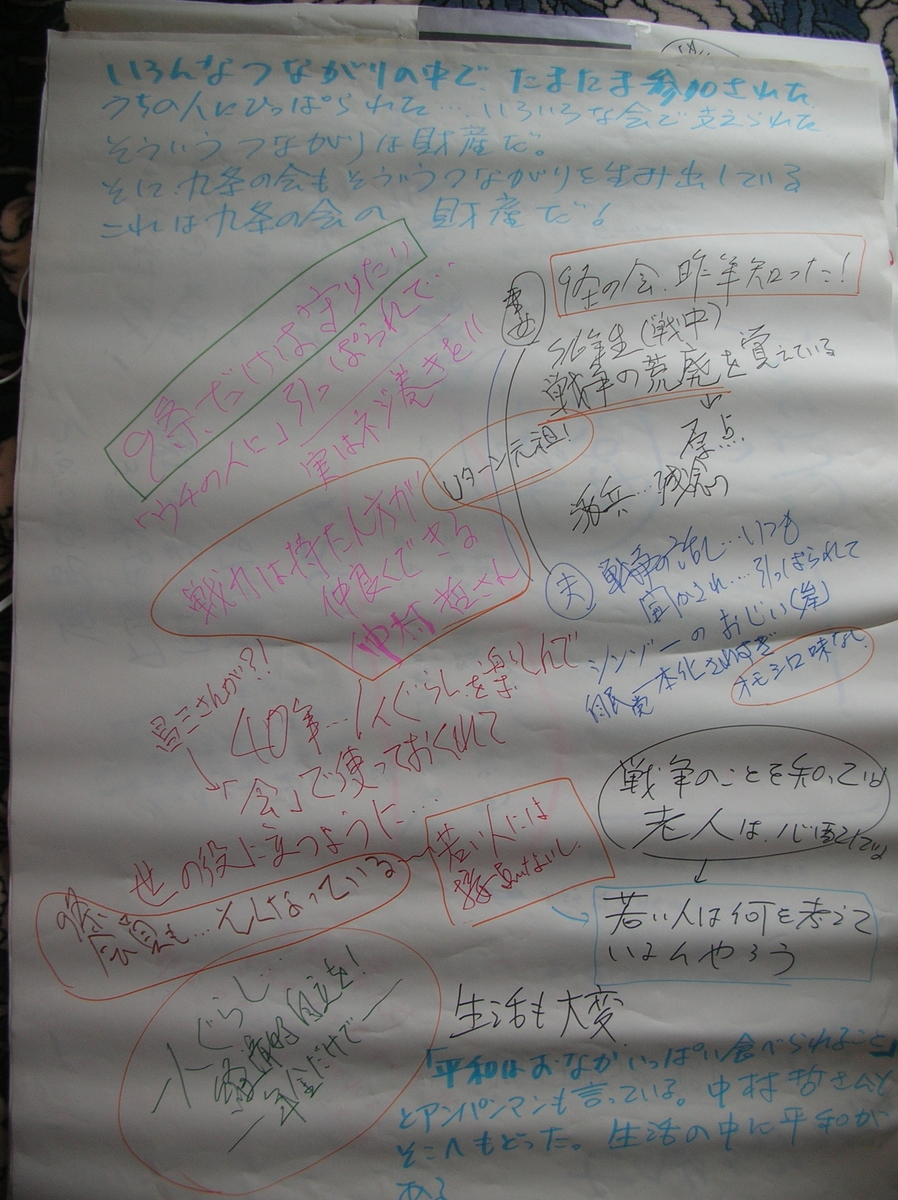 いろんなつながりの中で、たまたま参加された
うちの人にひっぱられた…いろいろな会で支えられた
そういうつながりは財産だ。
そに九条の会もそういうつながりを生み出している
これは九条の会の 財産だ！
9条だけは守りたい
「ウチの人に」引っぱられて…
実はネジ巻きを!!
9条の会、昨年知った！
妻
S16年生(戦中)
戦争の荒廃を覚えている
↓
原点
派兵…残念
Uターン元祖！
戦力は持たん方が
仲良くできる
中村 哲さん
夫
戦争の話し…いつも
聞かされ…引っぱられて
シンゾーのおじい(岸)
自民党一本化されすぎ
オモシロ味なし
昌三さんが?!
40年…1人ぐらしを楽しんで
「会」で使っておくれて
世の役に立つように…
若い人には
接点がないし
9条
会員も…えくなっている
戦争のことを知っている
老人は、心配している
↓
若い人は何を考えて
いるんやろう
一人ぐらし…
経済的自立を！
―年金だけで―
生活も大変
「平和はおなかいっぱい食べられること」
とアンパンマンも言っている。中村哲さんも
そこへもどった。生活の中に平和が
ある